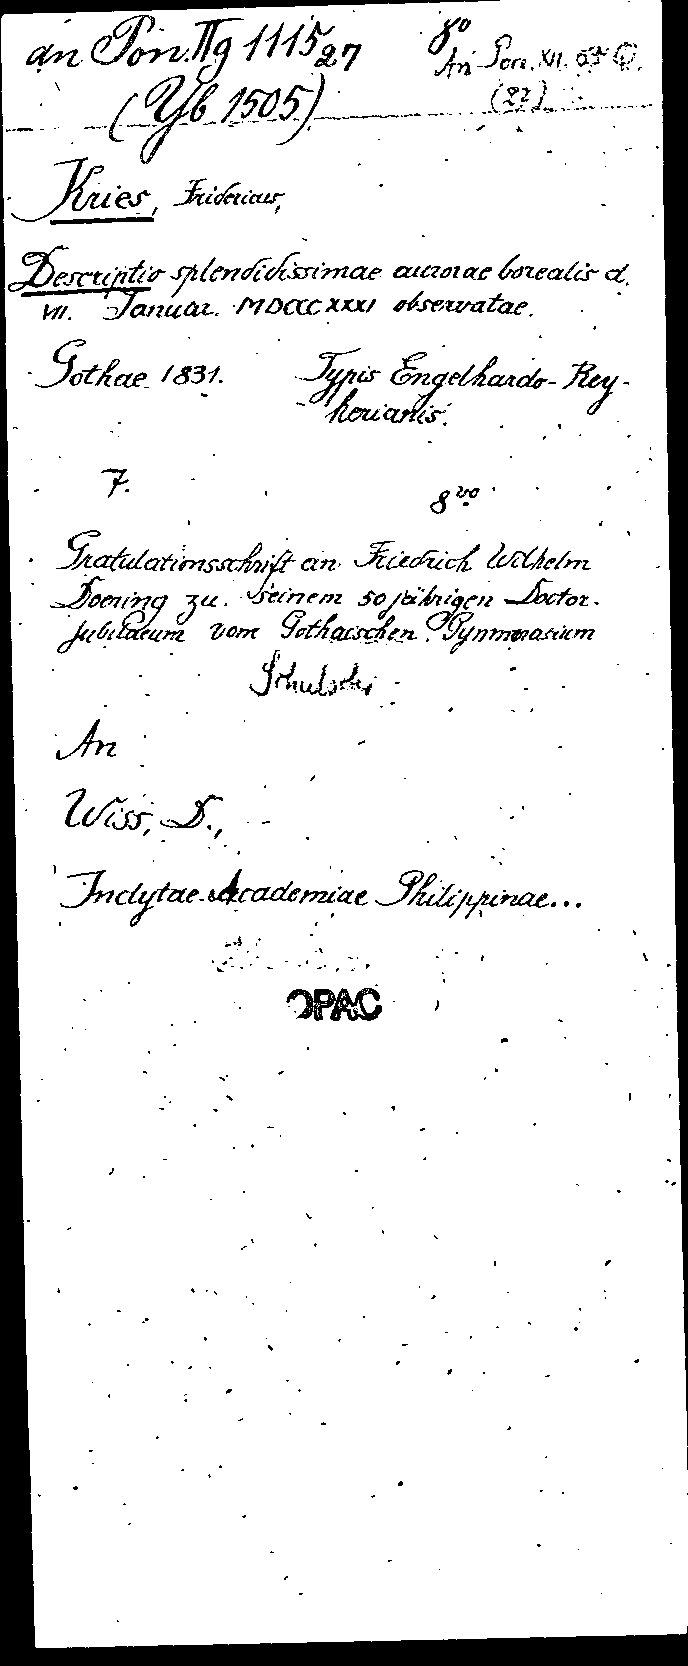 an Pon. IIg 1115 27
8°
An Pon. XII. 
(Yb 1505)
(27)
Kries, Fridericus,
Descriptio splendidissimae aurorae borealis d.
VII. Januar. MDCCCXXXI observatae.
Gothae 1831. Typis Engelhardo-Rey-
herianis.
7. 8vo
Gratulationsschrift an Friedrich Wilhelm
Doering zu seinem 50 jährigen Doctor-
jubilaeum vom Gothaischen Gymnasium
An
Wiss, D.,
Inclytae Academiae Philippinae...
OPAC